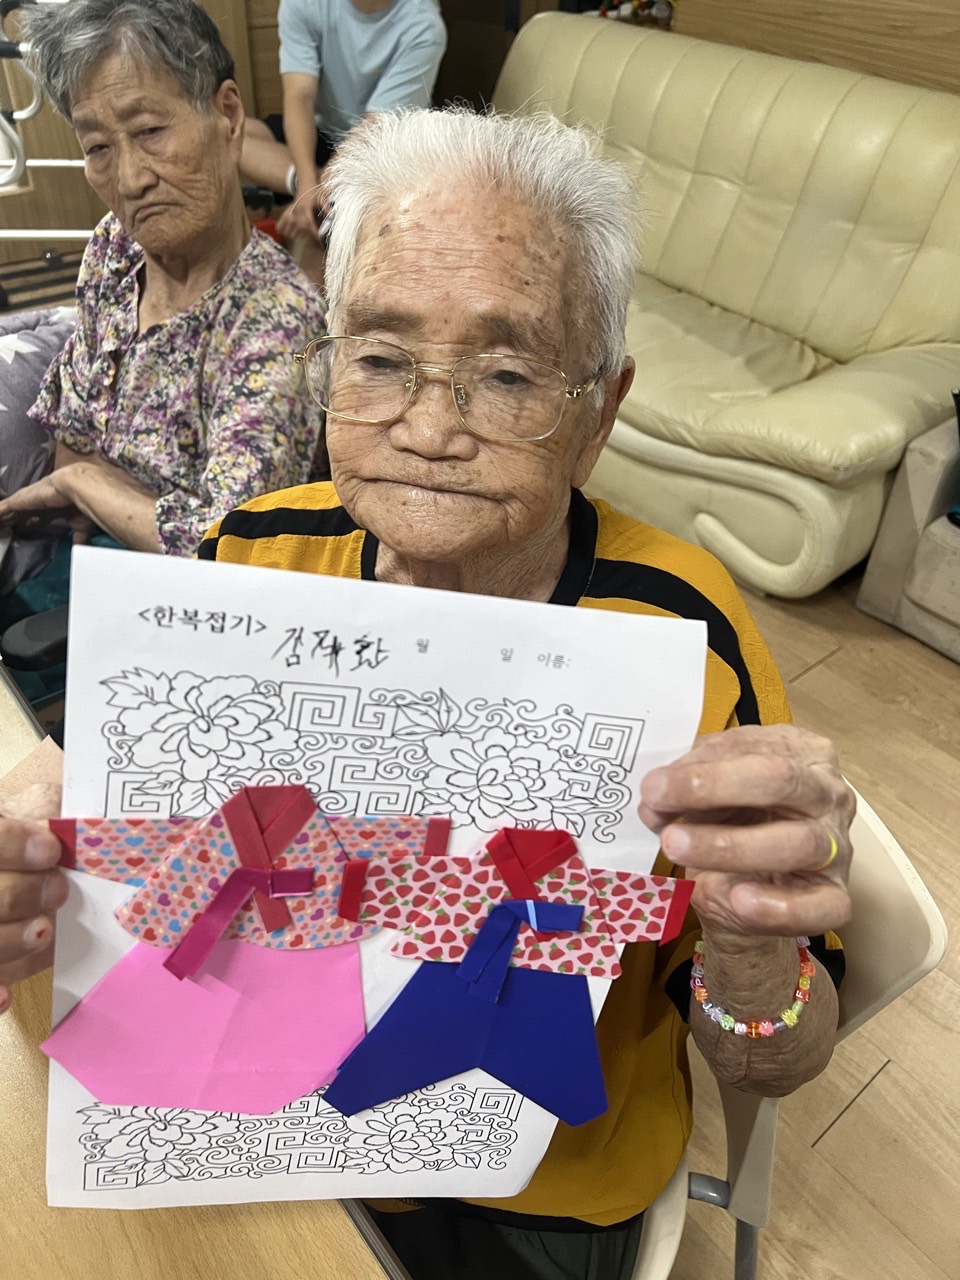 <한복접기> 김재환 월 일 이름: